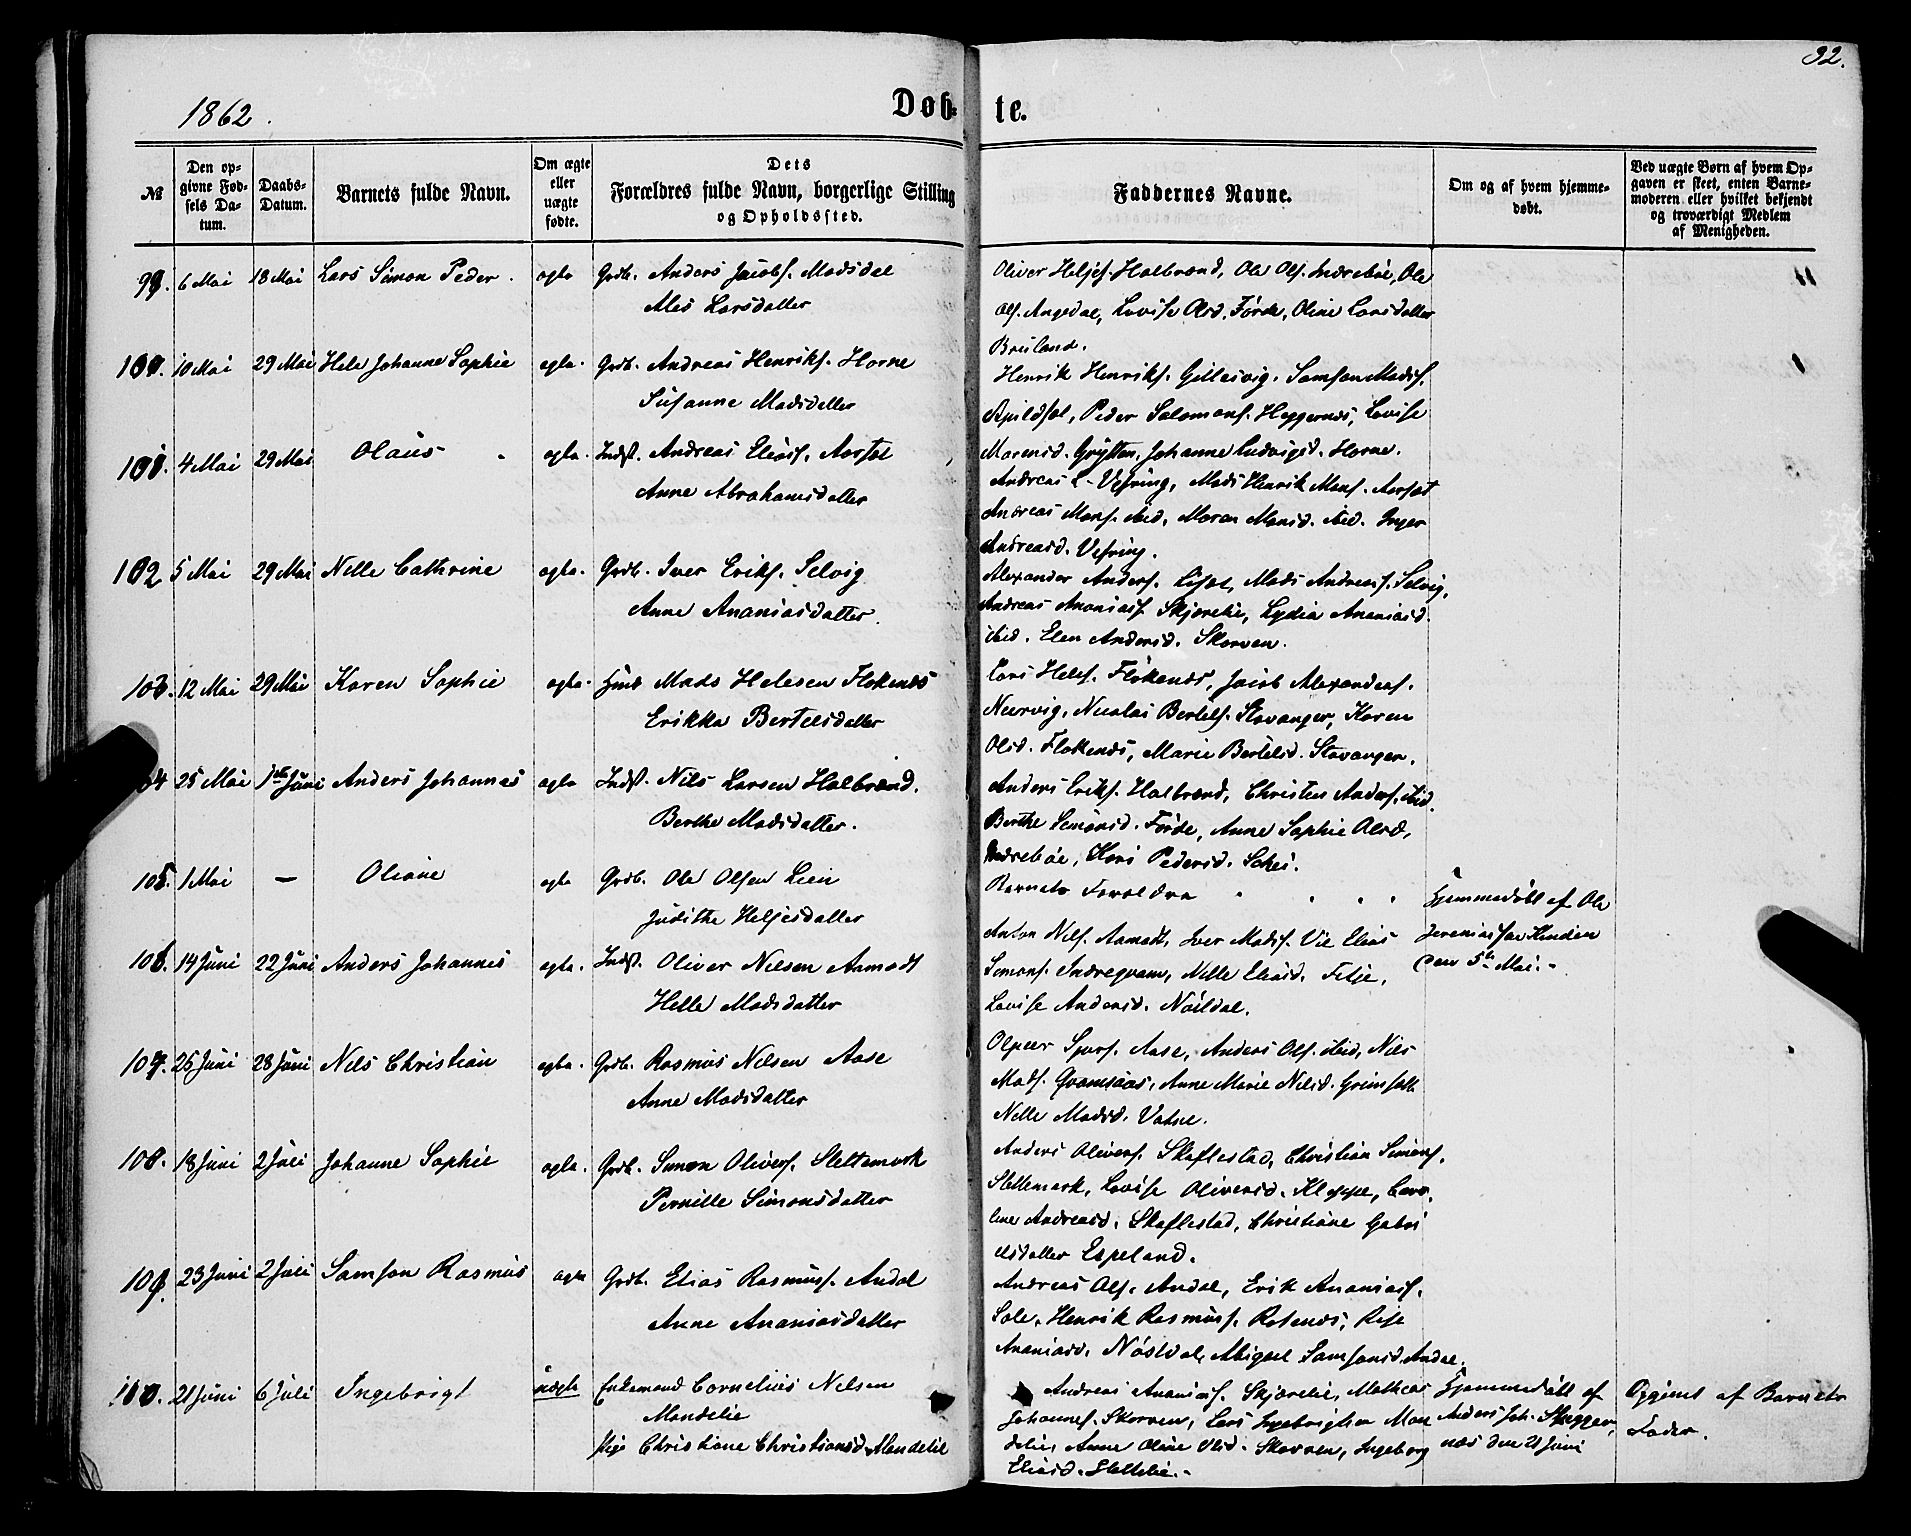 32.
1862.
Døb-
te.
№
Den op-
givne Fød-
sels Da-
tum.
Daabs-
Datum.
Barnets fulde Navn.
Om ægte
eller
uægte
fødte.
Dets
Forældres fulde Navn, borgerlige Stilling
og Opholdssted.
Faddernes Navne.
Om og af hvem hjemme-
døbt.
Ved uægte Børn af hvem Op-
gaven er skeet, enten Barne-
moderen eller hvilket bekjendt
og troværdigt Medlem
af Menigheden.
99. 6 Mai 18 Mai Lars Simon Peder. ægte Grdb. Anders Jacobs. Madsdal
Ales Larsdatter
Oliver Heljes. Halbrænd, Ole Ols. Indrebøe, Ole
Ols. Angedal, Lovise Olsd. Førde, Oline Larsdatter
Bruland.
100. 10 Mai 29 Mai Hele Johanne Sophie ægte. Grdb. Andreas Henriks. Horne
Susanne Madsdatter
Henrik Henriks. Gillesvig, Samson Mads.
Apildsæt, Peder Salomons. Heggernes, Lovise
Monsd. Grytten, Johanne Ludvigsd. Horne.
101. 4 Mai 29 Mai Olaus ægte. Indst. Andreas Elias. Aarsæt
Anne Abrahamsdatter
Andreas Vefring, Mads Henrik Mons. Aarsæt
Andreas Mons. ibid, Maren Monsd. ibid. Inger
Andreasd. Vefring.
102 5 Mai 29 Mai Nelle Cathrine ægte. Grdb. Iver Eriks. Selvig
Anne Ananiasdatter.
Alexander Anders. Mads Andreas. Selvig,
Andreas Ananias. Skjærelie, Lydia Ananiasd.
ibid. Elen Andersd. Skorven.
103. 12 Mai 29 Mai Karen Sophie ægte. Huus Mads Helesen Flokenes
Erikka Bertelsdatter
Lars Heles. Flokenes, Jacob Alexanders.
Nervig, Nicolai Bertels. Stavanger, Karen
Olsd. Flokenes, Marie Bertelsd. Stavanger.
104 25 Mai 1ste Juni Anders Johannes ægte Indst. Nils Larsen Halbrænd.
Berthe Madsdatter.
Anders Eriks. Halbrænd, Christen Anders. ibid.
Berthe Simonsd. Førde, Anne Sophie Olsd.
Indrebøe, Kari Pedersd. Schei.
105. 1 Mai — Oliane ægte Grdb. Ole Olsen Lien
Judithe Heljesdatter
Barnets Foreldre
Hjemmedøbt af Ole
Jeremiassen Hinden
den 5te Mai.
106. 14 Juni 22 Juni Anders Johannes ægte. Indst. Oliver Nilsen Aamodt
Helle Madsdatter
Anton Nils. Aamodt, Iver Mads. Vie Elias
Simons. Indregvam, Nelle Eliasd. Fitje,
Lovise Andersd. Nøstdal.
107. 25 Juni 28 Juni Nils Christian ægte. Grdb. Rasmus Nilsen Aase
Anne Madsdatter
Olpeer Sjurs. Aase, Anders Ols. ibid, Nils
Mads. Gromsaas, Anne Marie Nilsd. Grimsæth
Nelle Madsd. Vatne.
108. 18 Juni 2 Juli Johanne Sophie ægte. Grdb. Simon Olivers. Slettemark
Pernille Simonsdatter
Anders Olivers. Skaflestad, Christian Simons.
Slettemark, Lovise Oliversd. Kleppe, Caro
line Andreasd. Skaflestad, Christiane Gabri
elsdatter Espeland.
109. 23 Juni 2 Juli Samson Rasmus ægte Grdb. Elias Rasmuss. Andal
Anne Ananiasdatter
Andreas Ols. Andal, Erik Ananias.
Sole, Henrik Rasmuss. Rosenes, Rise
Ananiasd. Nøstdal, Abigael Samsonsd. Andal.
110. 21 Juni 6 Juli Ingebrigt uægte Enkemand Cornelius Nilsen
Mondelie
Pige Christiane Christiansd. Mondelie
Andreas Ananias. Skjærelie, Mathias
Johannes. Skorven, Lars Ingebrigtsen Mon
delie, Anne Oline Olsd. Skorven, Ingeborg
Eliasd. Slettelie.
Hjemmedøbt af
Anders Joh. Skegge
næs den 21 Juni
Opgivet af Barnets
Fader.